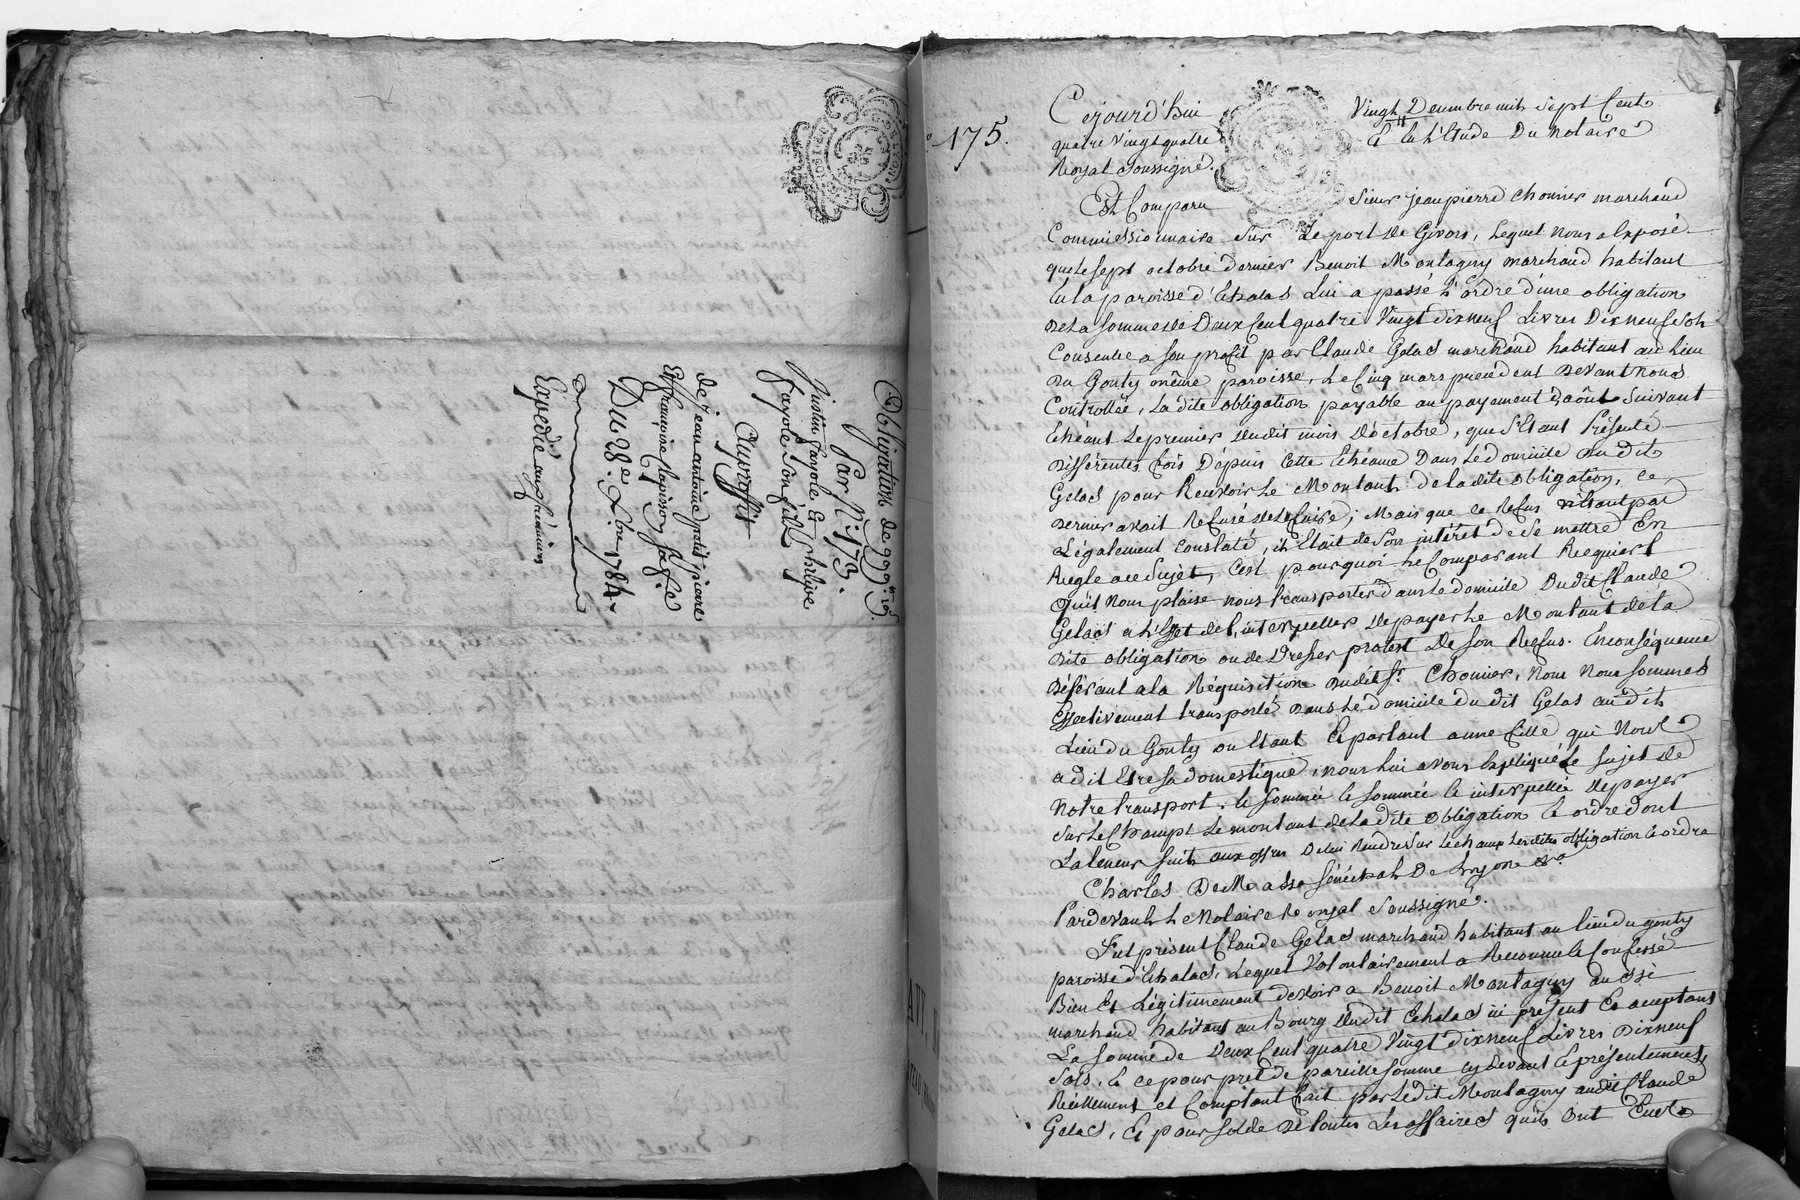 Obligation de 999ll 15s.
Par N.° 173.
Justin fayole Et philipe
fayole Son fils
Au proffit
de jean antoine petit pierre
Et françoise Sa fe
Du 28e Xbre 1784
Expedié aux créanciers
175.
Cejourd'hui Vingt Decembre mil Sept Cent
quatre Vingt quatre Et En L'Etude Du Notaire
Royal Soussigné.
Est Comparu Sieur jean pierre Chonier marchand
Commissionnaire Sur Le port de Givors, Lequel Nous a Exposé
que le Sept octobre dernier Benoit Montagny marchand habitant
En la paroisse d'Echalas Lui a passé L'ordre d'une obligation
De La Somme de Deux Cent quatre Vingt dixneuf Livres Dixneuf Sols
Consentie a Son profit par Claude Gelas marchand habitant au Lieu
Du Gonty même paroisse, Le Cinq mars precedent Devant Nous
Controllée, La dite obligation payable au payement D'août Suivant
Echéant Le premier dudit mois D'octobre, que S'Etant Présenté
Différentes fois Depuis Cette Echéance Dans Le domicile Du dit
Gelas pour Recevoir Le Montant de la dite obligation, Ce
Dernier avait Refusé de Le faire; Mais que Ce Refus n'Etant pas
Légalement Constaté, il Etait de Son intérêt de Se mettre En
Regle a ce Sujet, C'est pourquoi Le Comparant Requiert
qu'il Nous plaise nous transporter Dans Le domicile Dudit Claude
Gelas a L'effet de L'interpeller De payer Le Montant de la
Dite obligation ou de Dresser protest De Son Refus. En Conséquence
Déférant a la Réquisition Dudit Sr. Chonier, Nous Nous Sommes
Effectivement transporté Dans Le domicile du dit Gelas audit
Lieu du Gonty ou Etant Et parlant a une fille qui Nous
a dit Etre Sa domestique, nous Lui avons Expliqué Le Sujet de
Notre transport. Et Sommée Et interpellée De payer
Sur Le Champt Le montant de la dite obligation Et ordre dont
La teneur Suit aux offres De lui Rendre Sur Le champ Les dites obligation Et ordre
Charles De Masso Sénéchal De Lyon &a
Pardevant Le Notaire Royal Soussigné.
Fut présent Claude Gelas marchand habitant au Lieu du gonty
paroisse d'Echalas, Lequel Volontairement a Reconnu Et Confessé
Bien Et Légitimement devoir a Benoit Montagny aussi
marchand habitant au Bourg dudit Echalas ici présent Et acceptant
La Somme de Deux Cent quatre Vingt dixneuf Livres Dixneuf
Sols. Et Ce pour prêt de pareille Somme Cy devant Et présentement
Réellement et Comptant fait par Le dit Montagny audit Claude
Gelas, Et pour Solde De toutes Les affaires qu'ils ont Eues